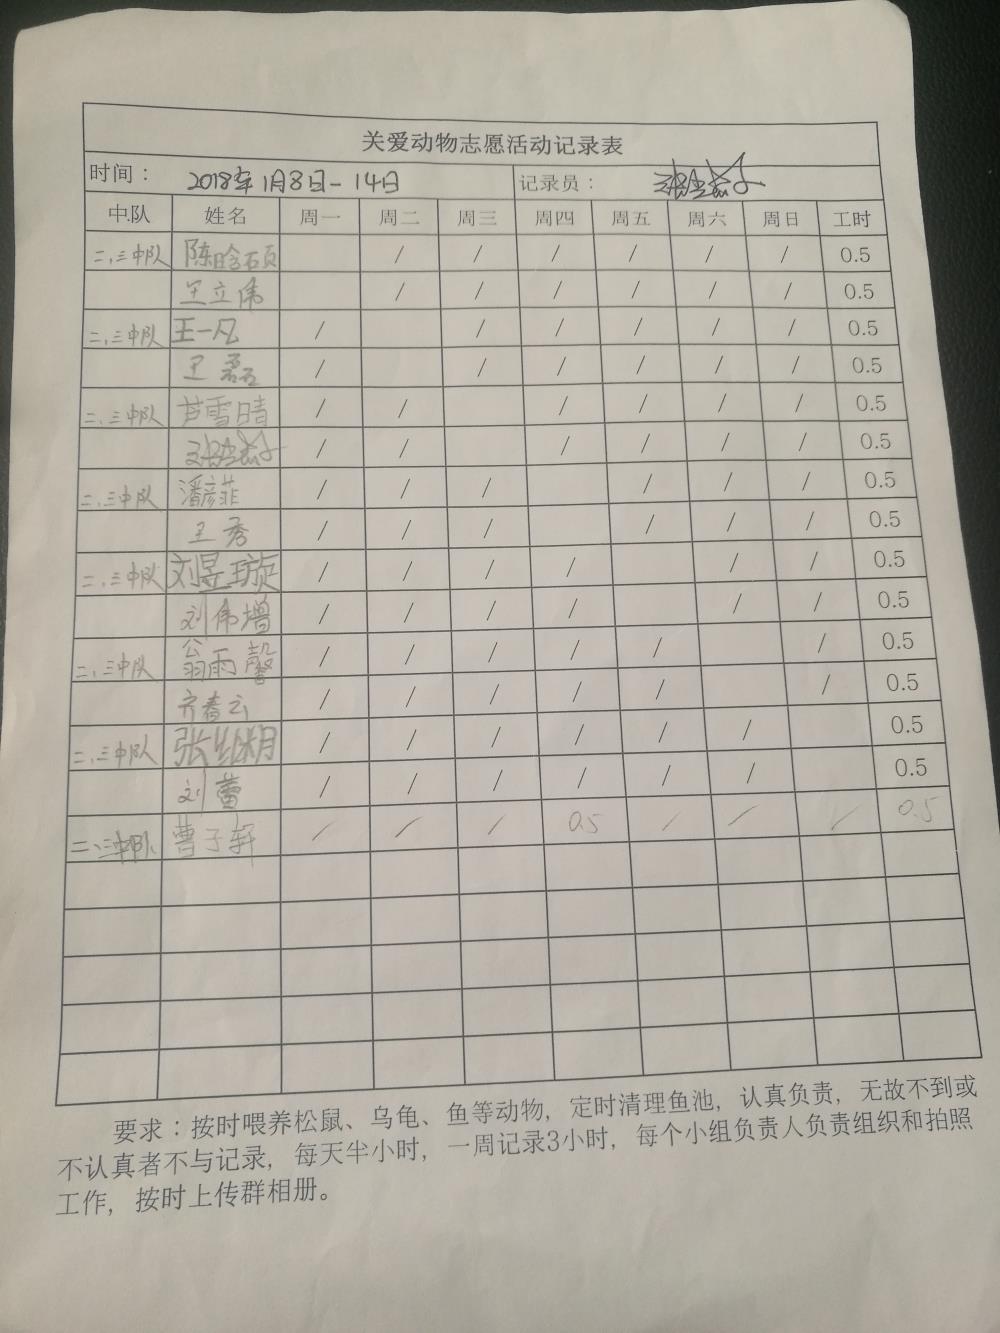 关爱动物志愿活动记录表
时间： 2018年1月8日-14日 记录员：
中队 姓名 周一 周二 周三 周四 周五 周六 周日 工时
二、三中队 陈晗硕 / / / / / / 0.5
王立伟 / / / / / / 0.5
二、三中队 王一凡 / / / / / / 0.5
王磊 / / / / / / 0.5
二、三中队 芦雪晴 / / / / / / 0.5
/ / / / / / 0.5
二、三中队 潘彦菲 / / / / / / 0.5
王秀 / / / / / / 0.5
二、三中队 刘昱璇 / / / / / / 0.5
刘伟增 / / / / / / 0.5
二、三中队 翁雨馨 / / / / / / 0.5
齐春云 / / / / / / 0.5
二、三中队 张 / / / / / / 0.5
刘蕾 / / / / / / 0.5
二、三中队 曹子轩 / / / 0.5 / / / 0.5
要求：按时喂养松鼠、乌龟、鱼等动物，定时清理鱼池，认真负责，无故不到或
不认真者不与记录，每天半小时，一周记录3小时，每个小组负责人负责组织和拍照
工作，按时上传群相册。